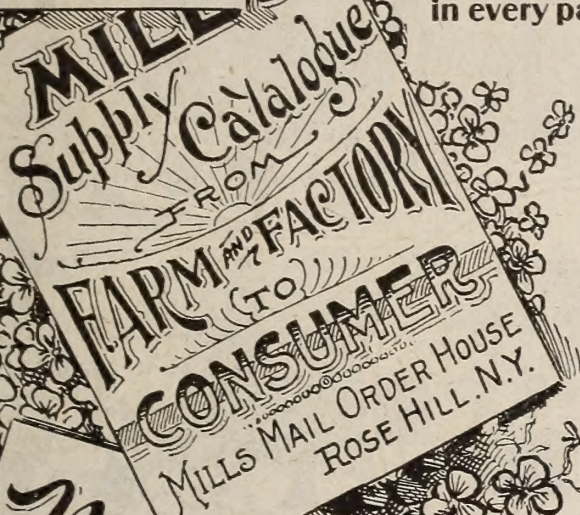 in every pa
MILLS
Supply Catalogue
FROM
FARM AND FACTORY
(TO)
CONSUMER
MILLS MAIL ORDER HOUSE
ROSE HILL. N.Y.